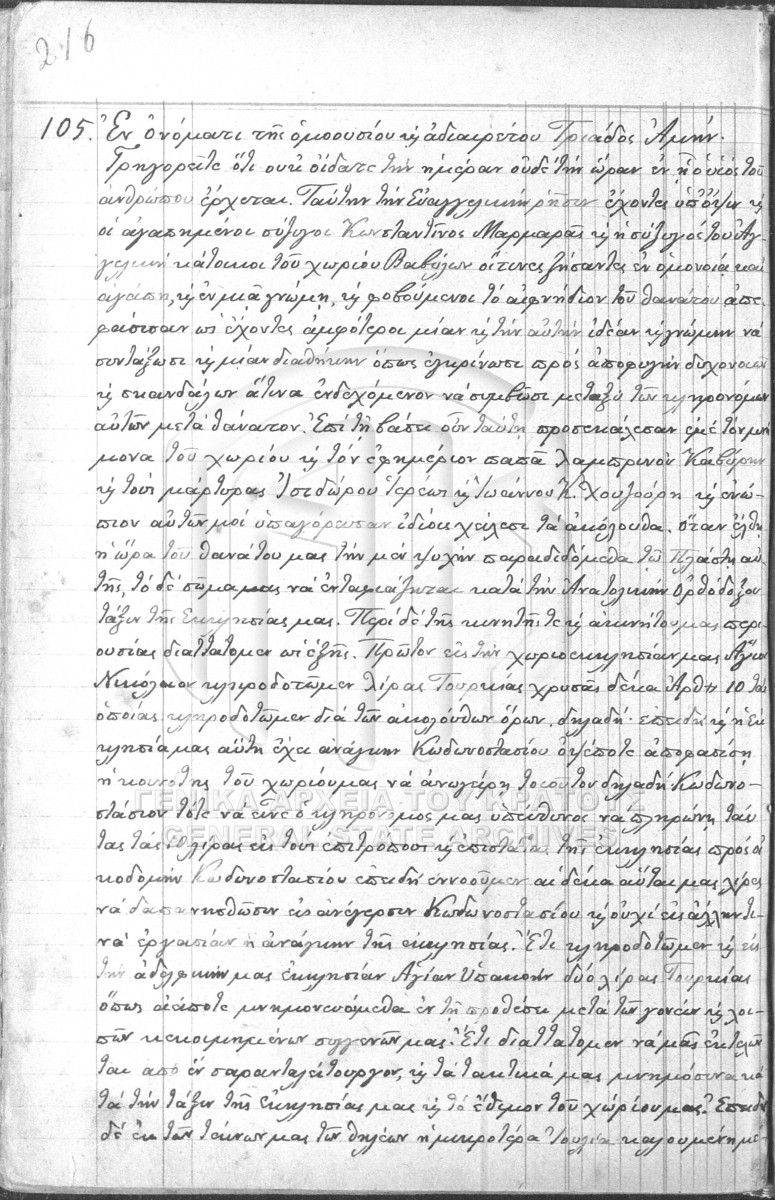 216
105. Ἐν ὀνόματι τῆς ὁμοουσίου κ ἀδιαιρέτου Τριάδος Ἀμήν.
Γρηγορεῖτε ὅτι οὐκ οἴδατε τὴν ἡμέραν οὐδέ τήν ὥραν ἐν ᾗ ὁ υἱός τοῦ
ἀνθρώπου ἔρχεται. Ταύτην τήν Εὐαγγελικήν ρῆσιν ἔχοντες ὑπ' ὄψιν κ
οἱ ἀγαπημένοι σύζυγοι Κωνσταντῖνος Μαρμαρᾶς κ ἡ σύζυγός του Ἀγ-
γελικὴ κάτοικοι τοῦ χωρίου Βαβύλων οἵτινες ζήσαντες ἐν ὁμονοίᾳ καὶ
ἀγάπῃ, κ ἐν μιᾷ γνώμῃ, κ φοβούμενοι τό αἰφνήδιον τοῦ θανάτου ἀπε-
φάσισαν ὡς ἔχοντες ἀμφότεροι μίαν κ τήν αὐτήν ἰδέαν κ γνώμην νά
συντάξωσι κ μίαν διαθήκην ὅπως ἐγκρίνωσι πρός ἀποφυγήν διχονοιῶν
κ σκανδάλων ἅτινα ἐνδεχόμενον νά συμβῶσι μεταξύ τῶν κληρονόμων
αὐτῶν μετά θάνατον. Ἐπί τῇ βάσει οὖν ταύτῃ προσεκάλεσαν ἐμέ τόν μνή
μονα τοῦ χωρίου κ τόν ἐφημέριον παπᾶ Λαμπρινόν Καβύρην
κ τούς μάρτυρας Ἰσιδώρου Ἱερέως κ Ἰωάννου Κ. Χουζούρη κ ἐνώ-
πιον αὐτῶν μοί ὑπαγόρευσαν ἰδίοις χείλεσι τά ἀκόλουθα. Ὅταν ἔλθῃ
ἡ ὥρα τοῦ θανάτου μας τήν μέν ψυχήν παραδιδόμεθα τῷ Πλάστῃ αὐ-
τῆς, τό δέ σῶμα μας νά ἐνταφιάζηται κατά τήν Ἀνατολικήν Ὀρθόδοξον
τάξιν τῆς Ἐκκλησίας μας. Περί δέ τῆς κινητῆς τε κ ἀκινήτου μας περι-
ουσίας διαττάτομεν ὡς ἑξῆς. Πρῶτον εἰς τήν χωριοεκκλησίαν μας Ἅγιον
Νικόλαον κληροδοτῶμεν λίρας Τουρκίας χρυσᾶς δέκα Ἀρθ 10 τάς
ὁποίας κληροδοτῶμεν διά τῶν ἀκολούθων ὅρων. δηλαδή. ἐπειδή κ ἡ ἐκ
κλησία μας αὕτη ἔχει ἀνάγκην Κωδωνοστασίου ὁψέποτε ἀποφασίσῃ
ἡ κοινότης τοῦ χωρίου μας νά ἀνωγέρῃ τοιοῦτον δηλαδή Κωδωνο-
στάσιον τότε νά εἶνε ὁ κληρονόμος μας ὑπεύθυνος νά πληρώνῃ ταύ
τας τάς 10 λίρας εἰς τούς ἐπιτρόπους κ ἐπιστάτας τῆς ἐκκλησίας πρός οἰ
κοδομήν Κωδωνοστασίου ἐπειδή ἐννοοῦμεν αἱ δέκα αὗται μας λίρες
νά δαπανησθῶσιν εἰς ἀνέγερσιν Κωδωνοστασίου κ οὐχί εἰς ἄλλην τι-
νά ἐργασίαν ἤ ἀνάγκην τῆς ἐκκλησίας. Ἔτι κληροδοτῶμεν κ εἰς
τήν ἀδελφικήν μας ἐκκλησίαν Ἁγίαν Ὑπακοήν δύο λίρας Τουρκίας
ὅπως ἀείποτε μνημονευόμεθα ἐν τῇ προθέσει μετά τῶν γονέων κ λοι-
πῶν κεκοιμημένων συγγενῶν μας. Ἔτι διαττάτομεν νά μᾶς ἐκτελῶν
ται ἀπό ἕν σαρανταλείτουργον, κ τά τακτικά μας μνημόσυνα κα
τά τήν τάξιν τῆς ἐκκλησίας μας κ τό ἔθιμον τοῦ χωρίου μας. Ἐπειδή
δέ ἐκ τῶν τέκνων μας τῶν θηλέων ἡ μικροτέρα Ἰουλία καλουμένη μέ-
ΓΕΝΙΚΑ ΑΡΧΕΙΑ ΤΟΥ ΚΡΑΤΟΥΣ
GENERAL STATE ARCHIVES